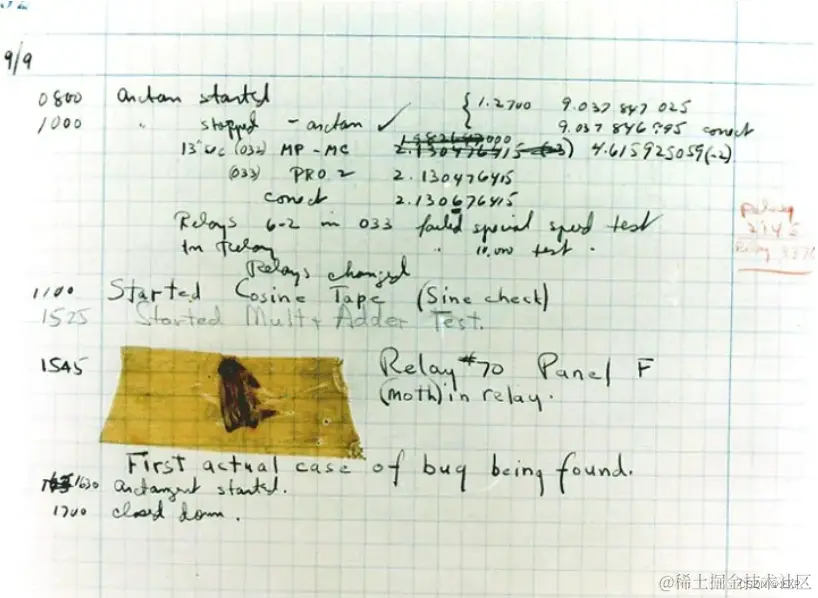 9/9
0800 arctan started { 1.2700 9.037 847 025
1000 " stopped - arctan ✓ 9.037 846 795 correct
13"uc (032) MP - MC 2.130476415 (-3) 4.615925059(-2)
(033) PRO 2 2.130476415
correct 2.130676415
Relays 6-2 in 033 failed special speed test
in relay " 10,000 test .
Relays changed
Relay
2145
Relay
1100 Started Cosine Tape (Sine check)
1525 Started Mult + Adder Test.
1545 Relay #70 Panel F
(moth) in relay.
First actual case of bug being found.
1630 arctangent started.
1700 closed down.
@稀土掘金技术社区